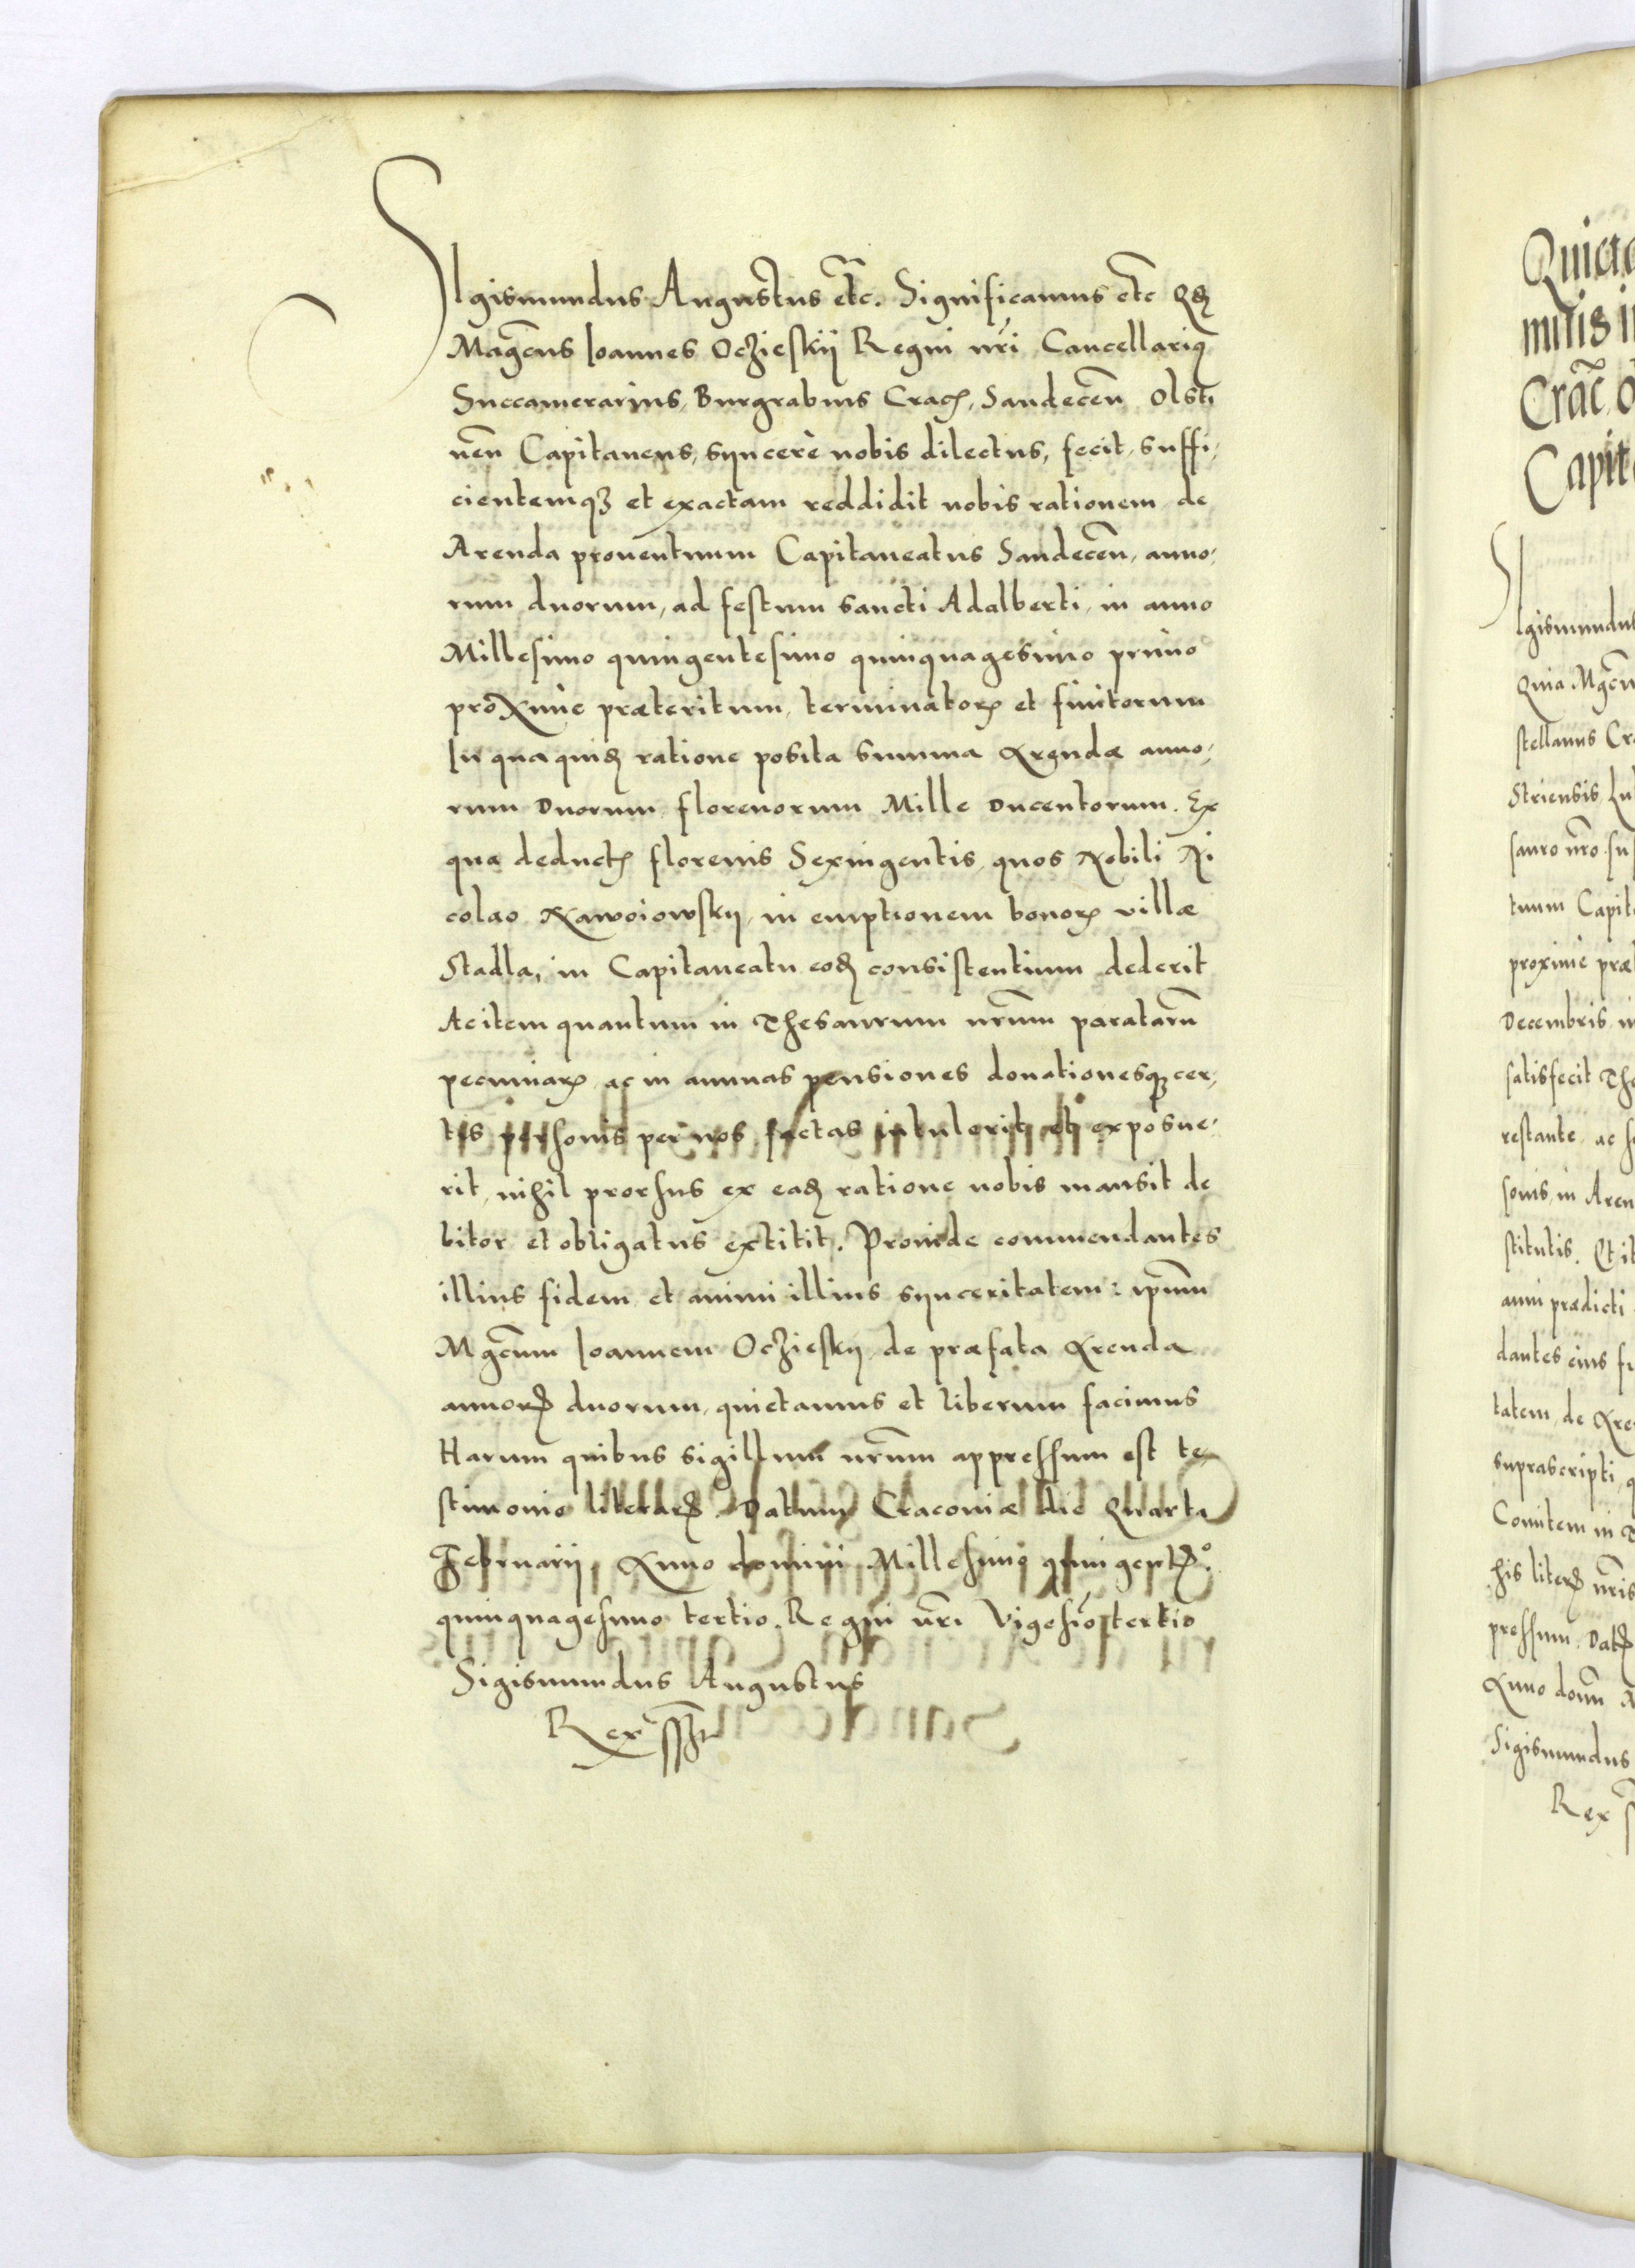 SIgismundus Augustus etc. Significamus etc Qđ
Magcus Ioannes Oczieskij Regni nri Cancellariq
Succamerarius, Burgrabius Crac, Sandecen Olsti
nen Capitaneus, syncerè nobis dilectus, fecit, suffi,
cientemq3 et exactam reddidit nobis rationem de
Arenda prouentuum Capitaneatus Sandecen, anno,
rum duorum, ad festum sancti Adalberti, in anno
Millesimo quingentesimo quinquagesimo primo
proxime præteritum, terminator et finitorum
In qua quid ratione posita summa Arendæ anno,
rum Duorum, florenorum Mille Ducentorum. Ex
qua deduct florenis Sexingentis, quos Nobili Ni
colao Nawoiowsky, in emptionem bonor villæ
Stadla, in Capitaneatu eod consistentium dederit
Ac item quantum in Thesaurum nrum paratarum
pecuniar ac in annuas pensiones donationesq3 cer,
tis personis per nos factas intulerit et exposue,
rit, nihil prorsus ex ead ratione nobis mansit de
bitor et obligatus extitit. Proinde commendantes
illius fidem et animi illius synceritatem: ipsum
Mgcum Ioannem Ocziesky, de præfata Arenda
annor duorum, quietamus et liberum facimus
Harum quibus sigillum nrum appressum est te,
stimonio literar. Datum Cracouiæ die Quarta
Februarij, Anno domini Millesimo quingent°.
quinquagesimo tertio. Regni nri Vigesimo tertio
Sigismundus Augustus
Rex sst
Quieta
militis i
Crac, O
Capit
SIgismundus
Quia Mgcu
stellanus Cr
Striensis, Lu
sauro nro su
tuum Capit
proxime præ
Decembris in
satisfecit The
restante, ac
sonis, in Aren
stitutis. Et it
anni prædicti
dantes eius fi
tatem, de Are
suprascripti, q
Comitem in T
his liter nris
pressum. Dat
Anno domi M
Sigismundus
Rex